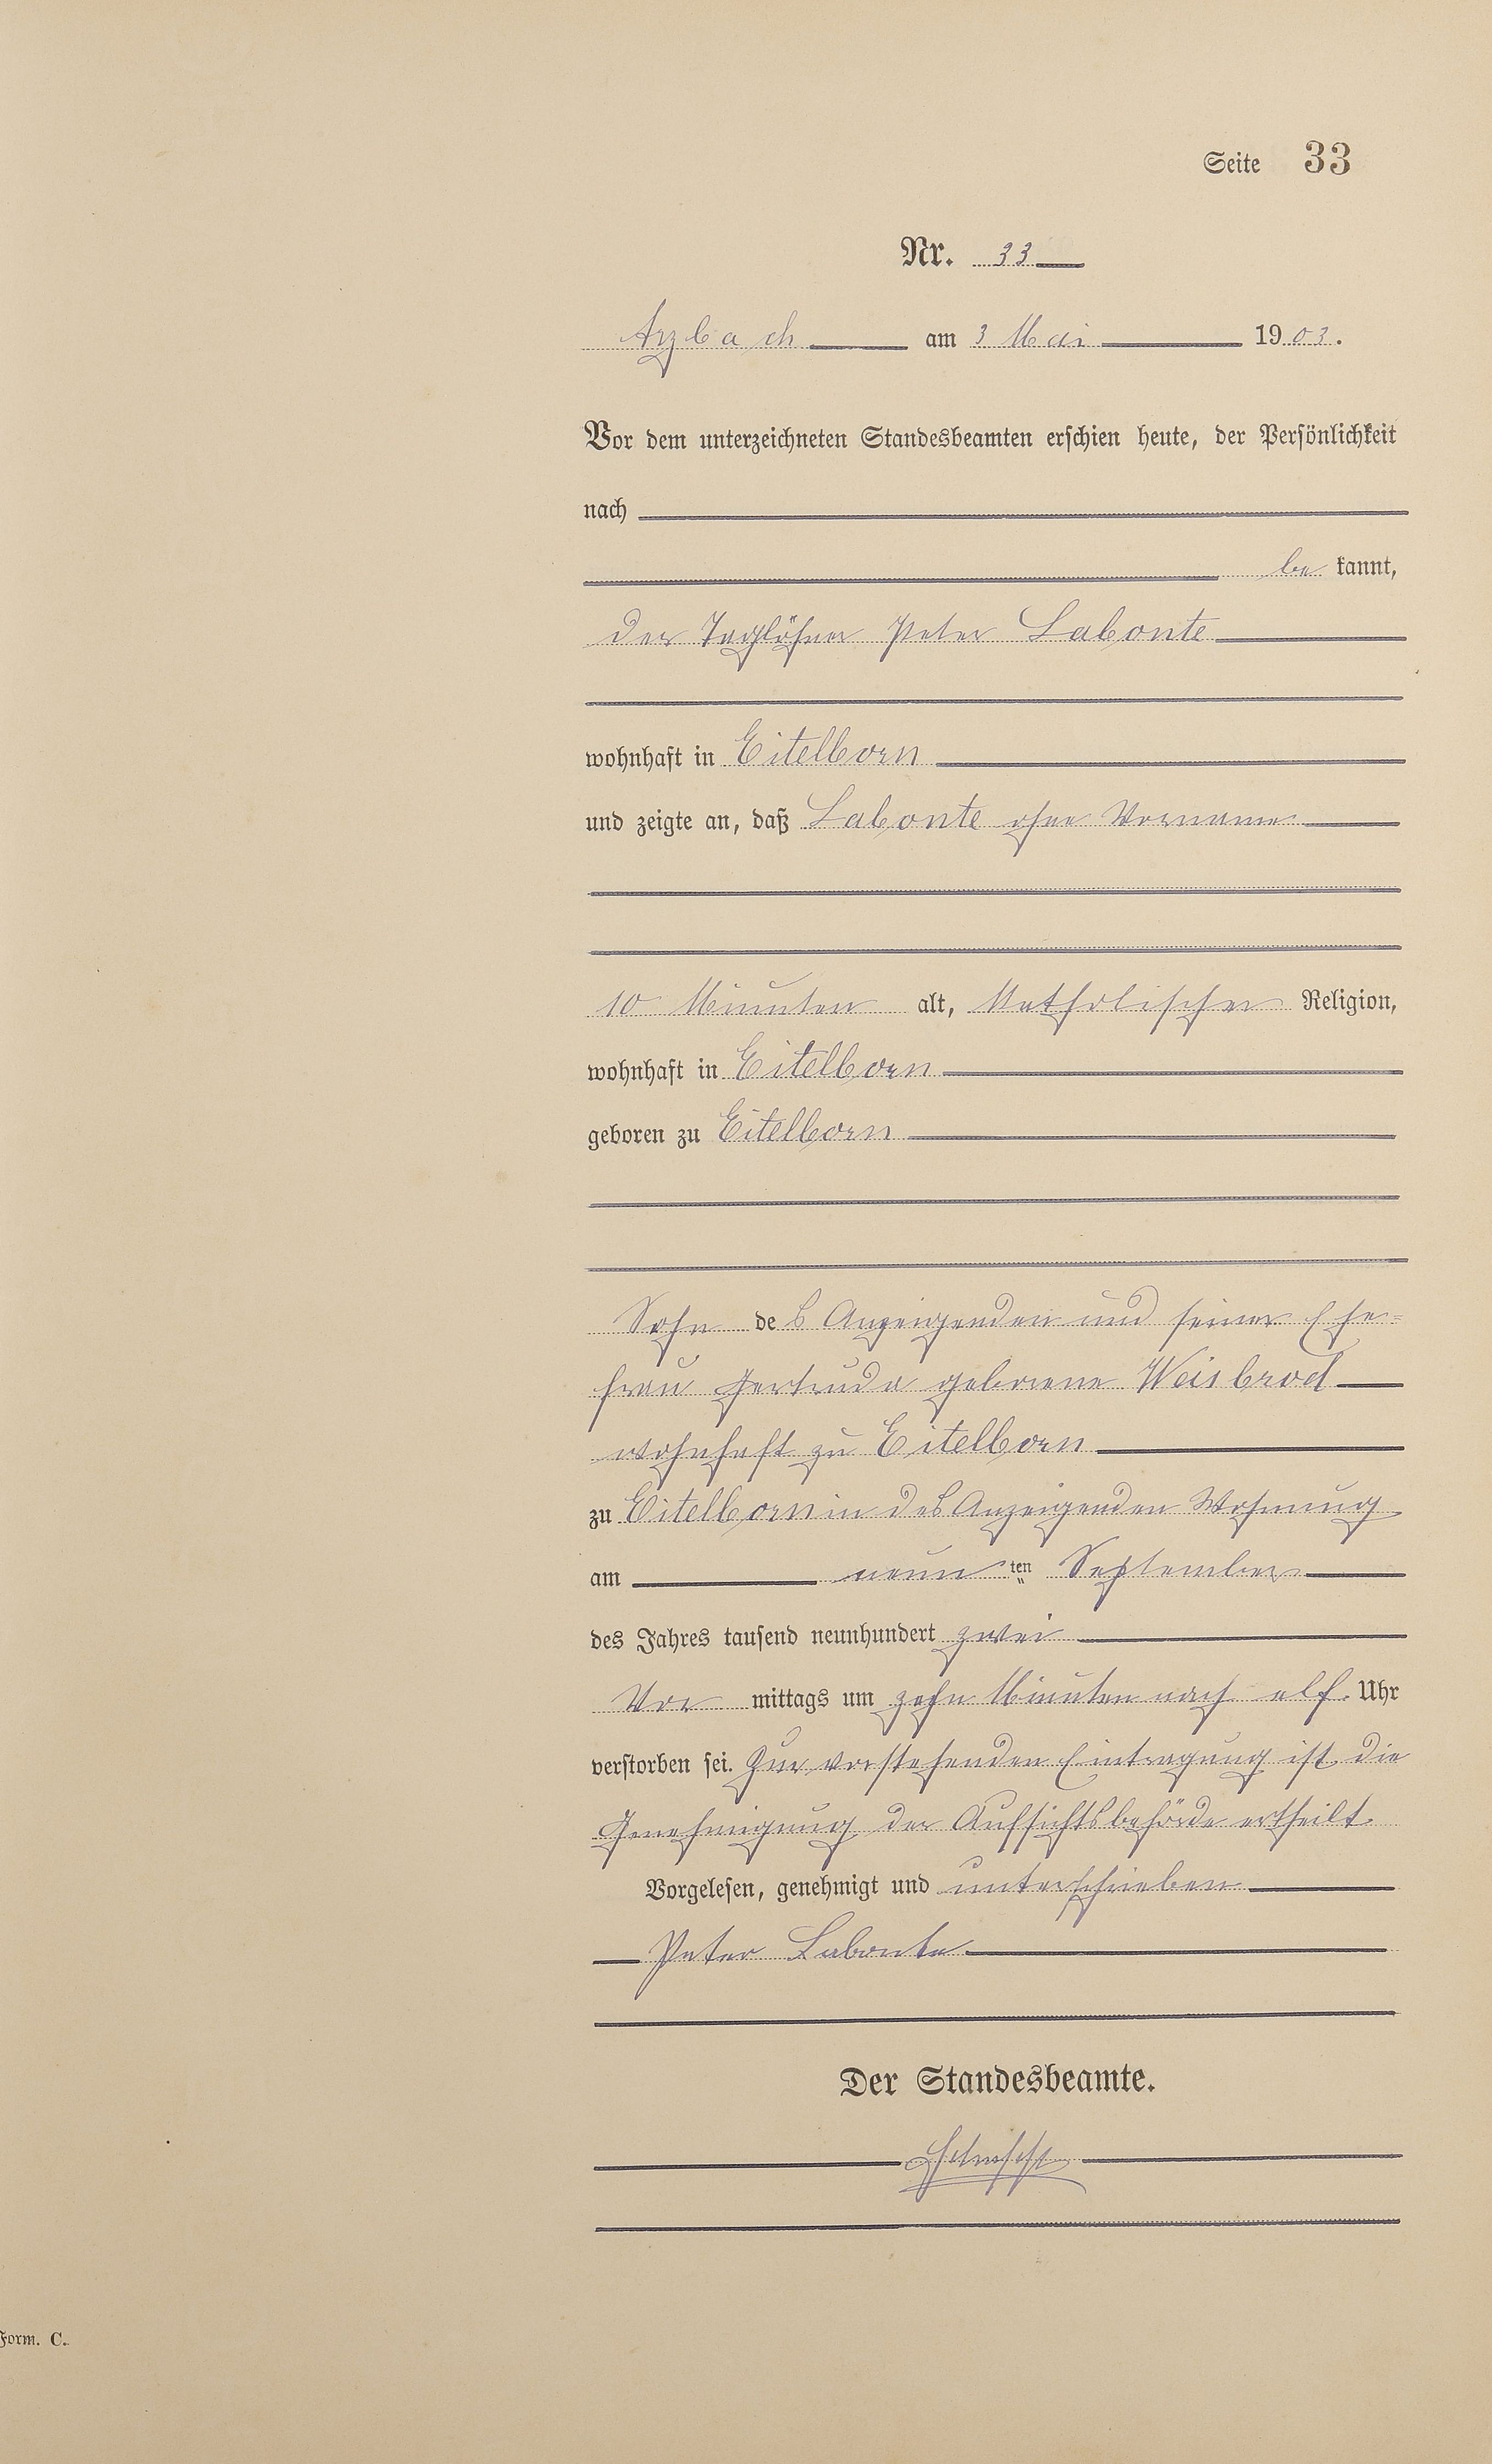 Seite 33
Nr. 33
Arzbach am 3 Mai 1903.
Vor dem unterzeichneten Standesbeamten erschien heute, der Persönlichkeit
nach
be kannt,
der Taglöhner Peter Labonte
wohnhaft in Eitelborn
und zeigte an, daß Labonte ohne Vorname
10 Minuten alt, Katholischer Religion,
wohnhaft in Eitelborn
geboren zu Eitelborn
Sohn des Anzeigenden und seiner Ehe-
frau Gertruda geborene Weisbrod
wohnhaft zu Eitelborn
zu Eitelborn in des Anzeigenden Wohnung
am neun ten September
des Jahres tausend neunhundert zwei
Vor mittags um zehn Minuten nach elf Uhr
verstorben sei. Zur vorstehenden Eintragung ist die
Genehmigung der Aufsichtsbehörde ertheilt.
Vorgelesen, genehmigt und unterschrieben
Peter Labonte
Der Standesbeamte.
Form. C.